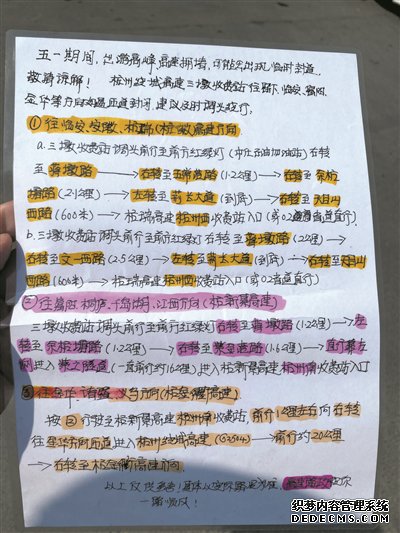 五一期间,出游高峰,高速拥堵,可能会出现临时封道,
敬请谅解! 杭州绕城高速三墩收费站往留下、临安、富阳、
金华等方向如遇匝道封闭,建议及时调头绕行。
①往临安、安徽、杭瑞(杭徽)高速方向
a.三墩收费站调头前行至前方红绿灯(中石油加油站)右转
至 →右转至 (1.2公里)→右转至余杭
塘路(2.1公里)→左转至荆长大道(到底)→右转至天目山
西路(600米)→杭瑞高速杭州西收费站入口(或02省道直行)
b.三墩收费站调头前行至前方红绿灯右转至 (2公里)→
右转至文一西路(2.5公里)→左转至荆长大道(到底)→右转至天目山
西路(600米)→杭瑞高速杭州西收费站入口(或02省道直行)
②往富阳、桐庐、千岛湖、江西方向(杭新景高速)
三墩收费站调头前行至前方红绿灯右转至 (1.2公里)→左
转至余杭塘路(1.2公里)→右转至紫金港路(1.6公里)→直行靠左
侧进入紫之隧道(一直前行约16公里)进入杭新景高速杭州南收费站入口
③往金华、诸暨、义乌方向(杭金衢高速)
按②行驶至杭新景高速杭州南收费站,前行 公里左右向右转
往金华方向匝道进入杭州绕城高速(G2504)→前行约20公里
→右转至杭金衢高速方向
以上仅供参考!具体以实际路况为准, 祝你
一路顺风!